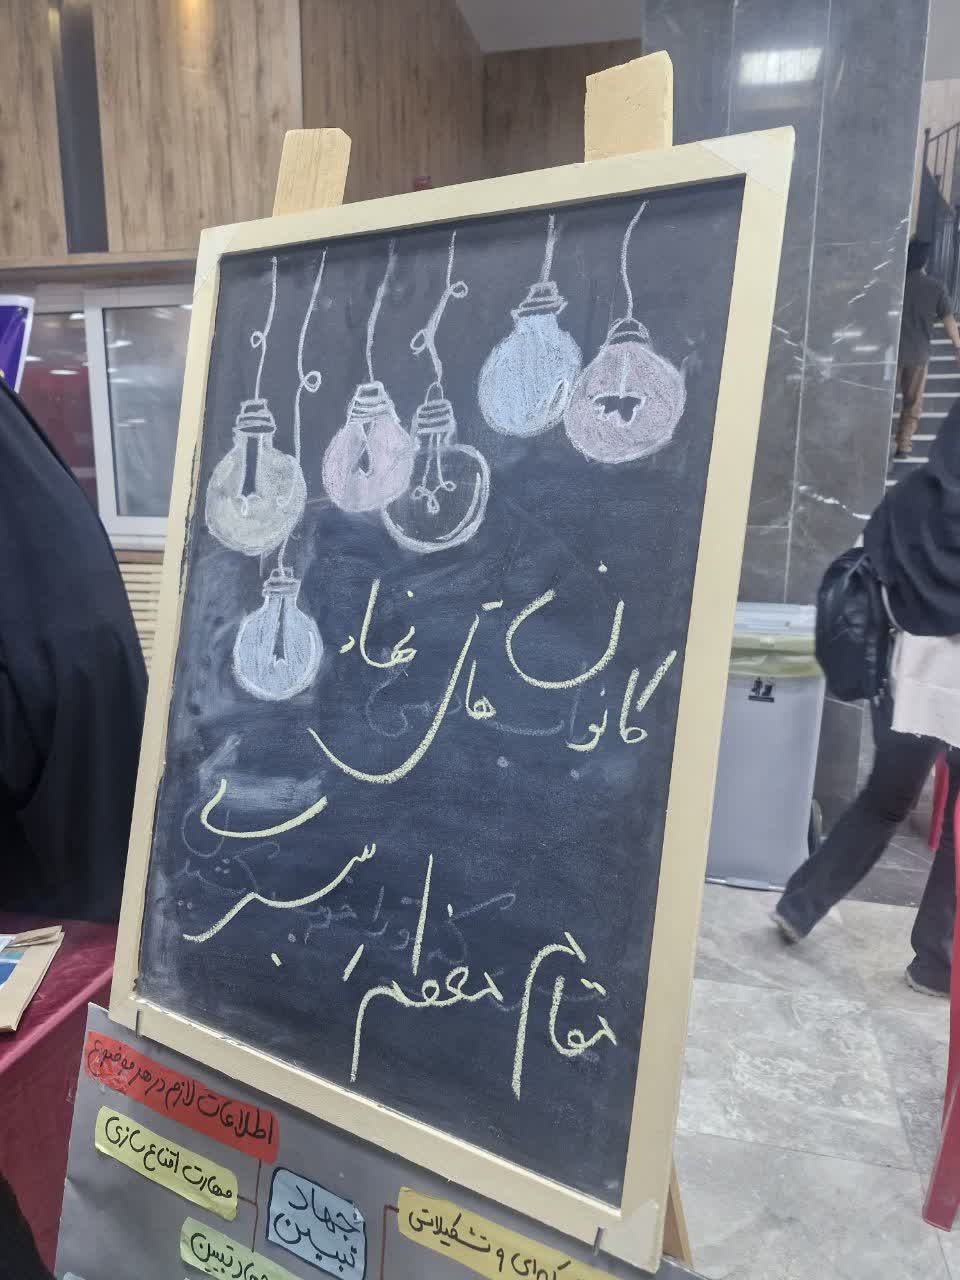 کانون های نهاد
مقام معظم رهبری
اطلاعات لازم در هر موضوع
مهارت اقناع سازی
جهاد
تبیین
ای و تشکیلاتی
جهاد تبیین